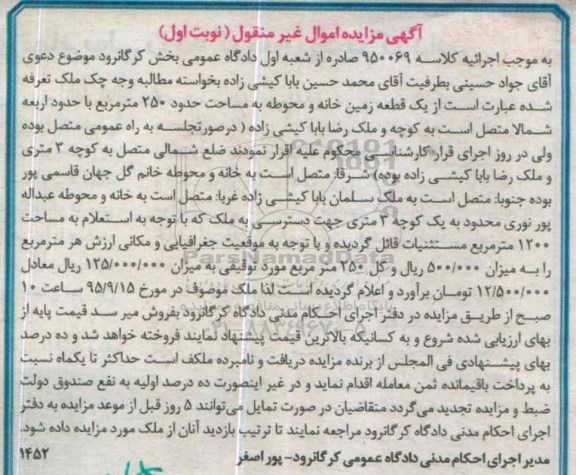 آگهی مزایده اموال غیر منقول ( نوبت اول)
به موجب اجرائیه کلاسه ۹۵۰۰۶۹ صادره از شعبه اول دادگاه عمومی بخش کرگانرود موضوع دعوی
آقای جواد حسینی بطرفیت آقای محمد حسین بابا کیشی زاده بخواسته مطالبه وجه چک ملک تعرفه
شده عبارت است از یک قطعه زمین خانه و محوطه به مساحت حدود ۲۵۰ مترمربع با حدود اربعه
شمالا متصل است به کوچه و ملک رضا بابا کیشی زاده ( درصورتجلسه به راه عمومی متصل بوده
ولی در روز اجرای قرار کارشناسی محکوم علیه اقرار نمودند ضلع شمالی متصل به کوچه ۳ متری
و ملک رضا بابا کیشی زاده بوده) شرقا: متصل است به خانه و محوطه خانم گل جهان قاسمی پور
بوده جنوبا: متصل است به ملک سلمان بابا کیشی زاده غربا: متصل است به خانه و محوطه عبداله
پور نوری محدود به یک کوچه ۳ متری جهت دسترسی به ملک که با توجه به استعلام به مساحت
۱۲۰۰ مترمربع مستثنیات قائل گردیده و با توجه به موقعیت جغرافیایی و مکانی ارزش هر مترمربع
را به میزان ۵۰۰/۰۰۰ ریال و کل ۲۵۰ متر مربع مورد توقیفی به میزان ۱۲۵/۰۰۰/۰۰۰ ریال معادل
۱۲/۵۰۰/۰۰۰ تومان برآورد و اعلام گردیده است لذا ملک موصوف در مورخ ۹۵/۹/۱۵ ساعت ۱۰
صبح از طریق مزایده در دفتر اجرای احکام مدنی دادگاه کرگانرود بفروش میر سد قیمت پایه از
بهای ارزیابی شده شروع و به کسانیکه بالاترین قیمت پیشنهاد نمایند فروخته خواهد شد و ده درصد
بهای پیشنهادی فی المجلس از برنده مزایده دریافت و نامبرده ملکف است حداکثر تا یکماه نسبت
به پرداخت باقیمانده ثمن معامله اقدام نماید و در غیر اینصورت ده درصد اولیه به نفع صندوق دولت
ضبط و مزایده تجدید می‌گردد متقاضیان در صورت تمایل می‌توانند ۵ روز قبل از موعد مزایده به دفتر
اجرای احکام مدنی دادگاه کرگانرود مراجعه نمایند تا ترتیب بازدید آنان از ملک مورد مزایده داده شود.
مدیر اجرای احکام مدنی دادگاه عمومی کرگانرود- پور اصغر ۱۴۵۲
ParsNamadData